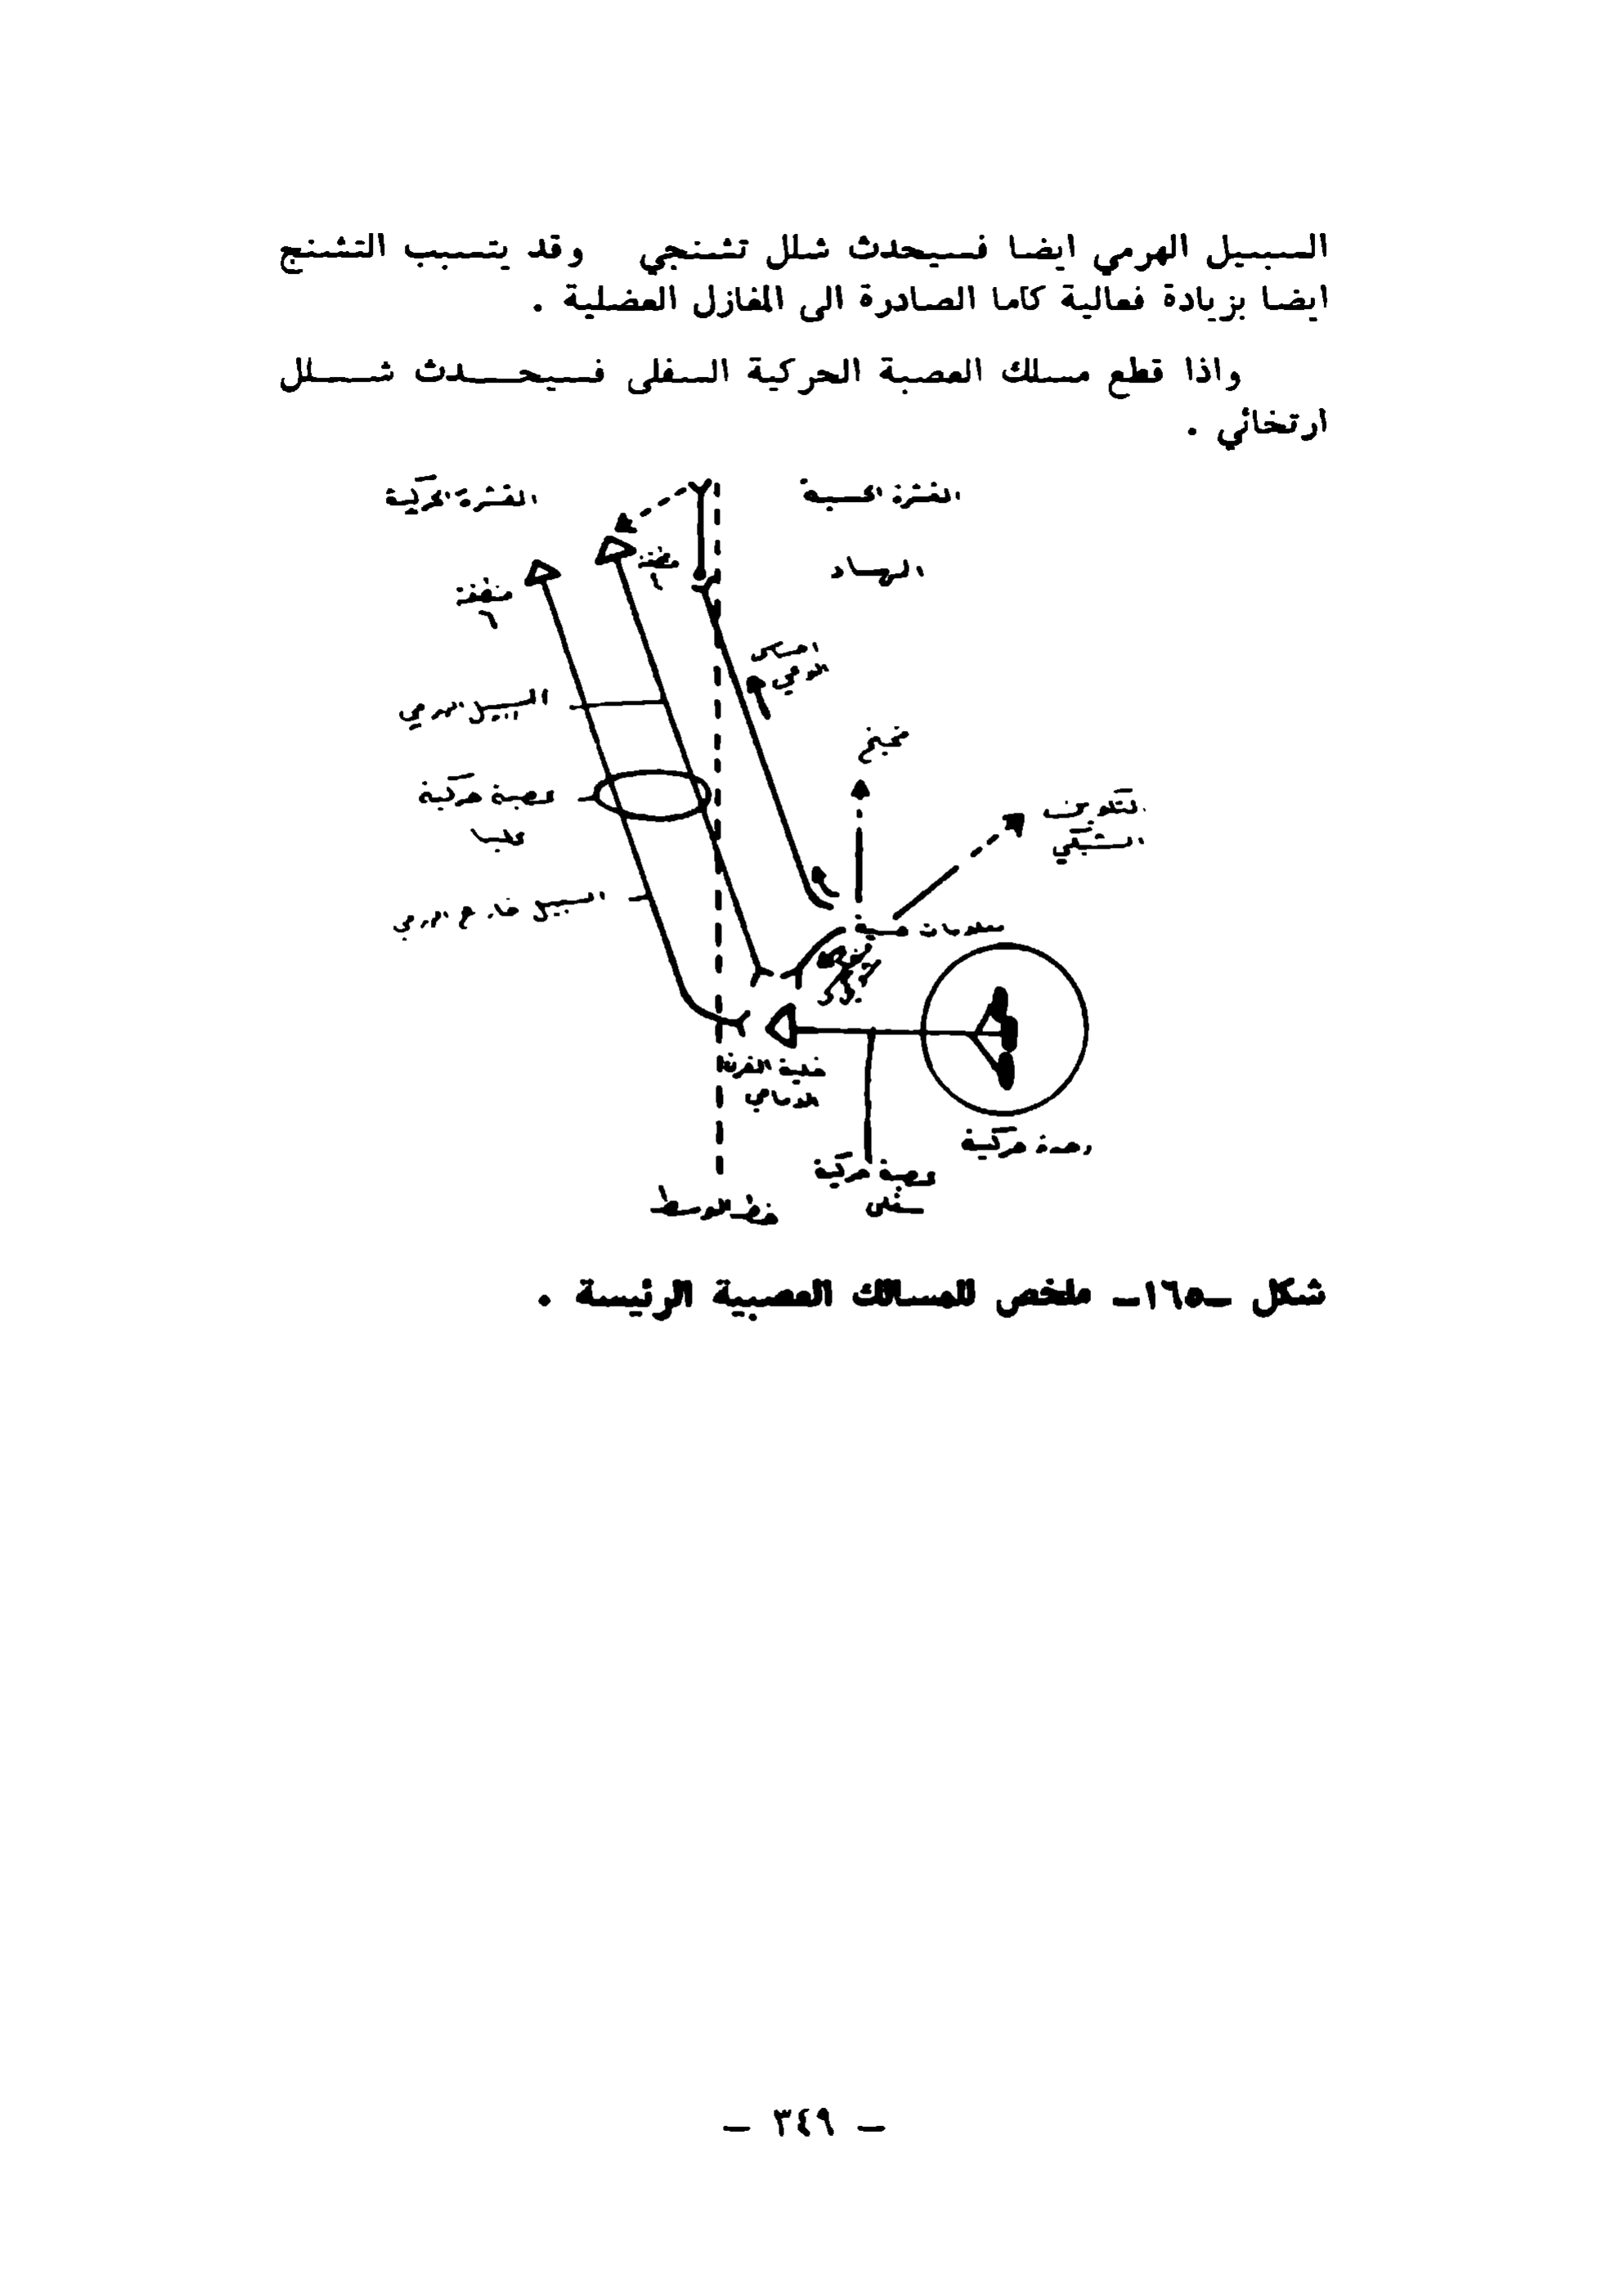 السبيل الهرمي ايضا فسيحدث شلل تشنجي وقد يتسبب التشنج
ايضا بزيادة فعالية كاما الصادرة الى المغازل العضلية .
واذا قطع مسلك العصبة الحركية السفلى فسيحدث شلل
ارتخائي .
القشرة الحسية
القشرة الحركية
المهاد
منطقة
منطقة
٦
احساس
الوعي
السبيل الهرمي
مخيخ
التكوين
الشبكي
عصبة حركية
عليا
السبيل خارج الهرمي
معلومات حسية
خلية القرن
الامامي
وحدة حركية
عصبة حركية
سفلى
خط الوسط
شكل –١٦٥– ملخص للمسالك العصبية الرئيسة .
– ٣٤٩ –